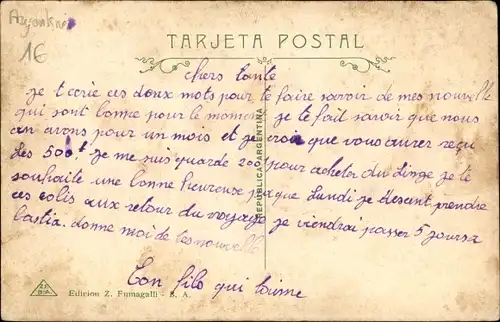 Argentine
16
TARJETA POSTAL
chers tante
je t ecrie ces deux mots pour te faire savoir de mes nouvelle
qui sont bonne pour le moment je te fait savoir que nous
en avons pour un mois et je croie que vous aurez reçu
les 500f je me suis garde 200f pour acheter du linge je te
souhaite une bonne heureuse paque Lundi je descent prendre
ces colis aux retour du voyage je viendrai passer 5 jours a
bastia. donne moi de tes nouvelle
Ton filo qui t'aime
REPUBLICA ARGENTINA
Edicion Z. Fumagalli - B. A.